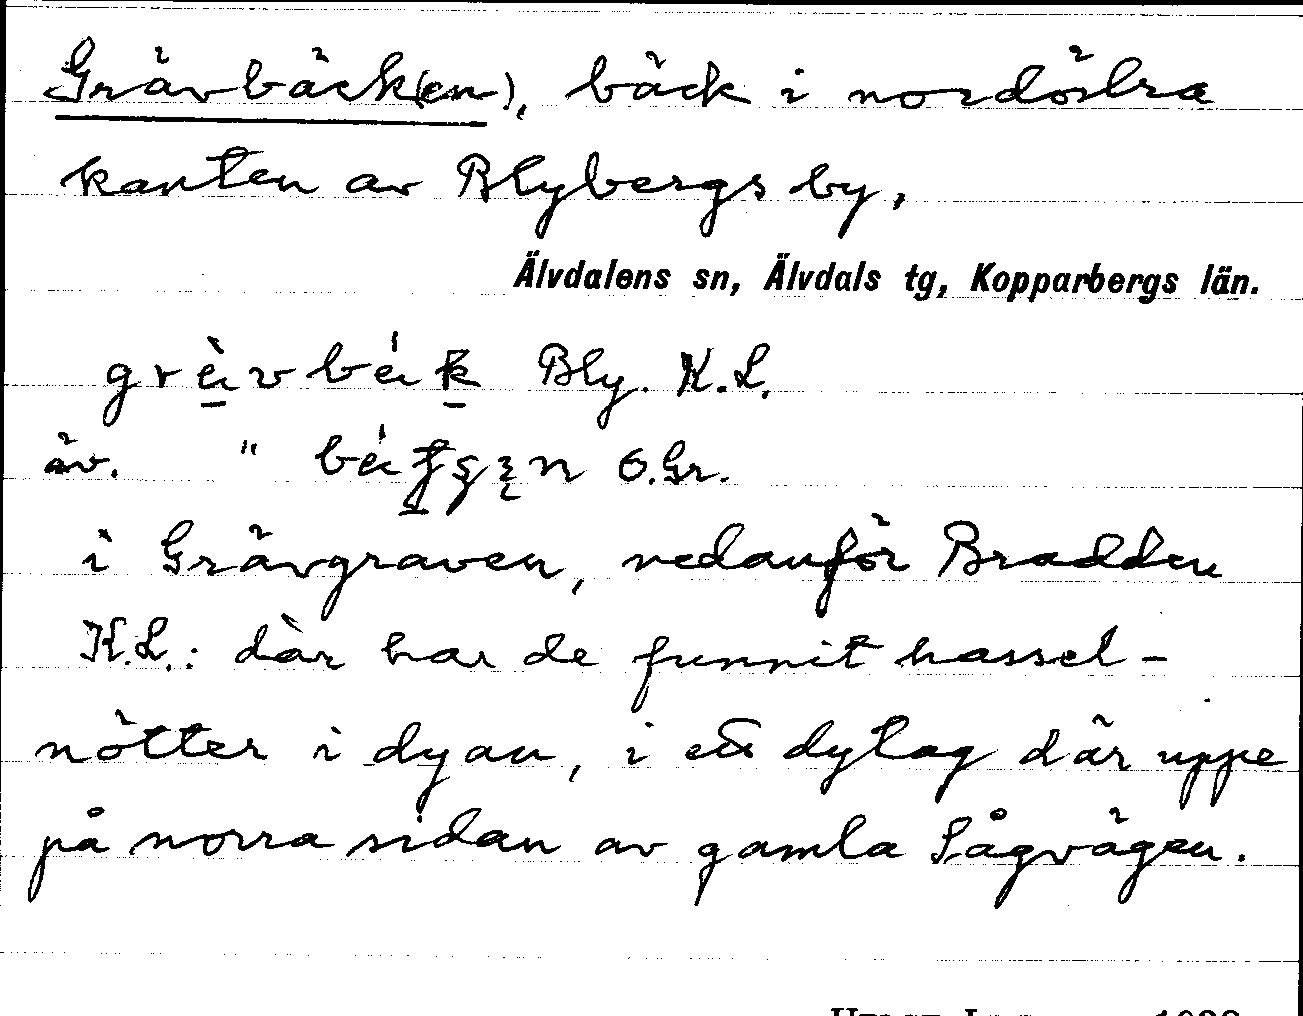 Grävbäck(en), bäck i nordöstra
kanten av Blybergs by,
Älvdalens sn, Älvdals tg, Kopparbergs län.
Bly. K.L.
äv. " O.Gr.
i Grävgraven, nedanför Bradden
K.L.: där har de funnit hassel-
nötter i dyan, i ett dylag där uppe
på norra sidan av gamla Sågvägen.